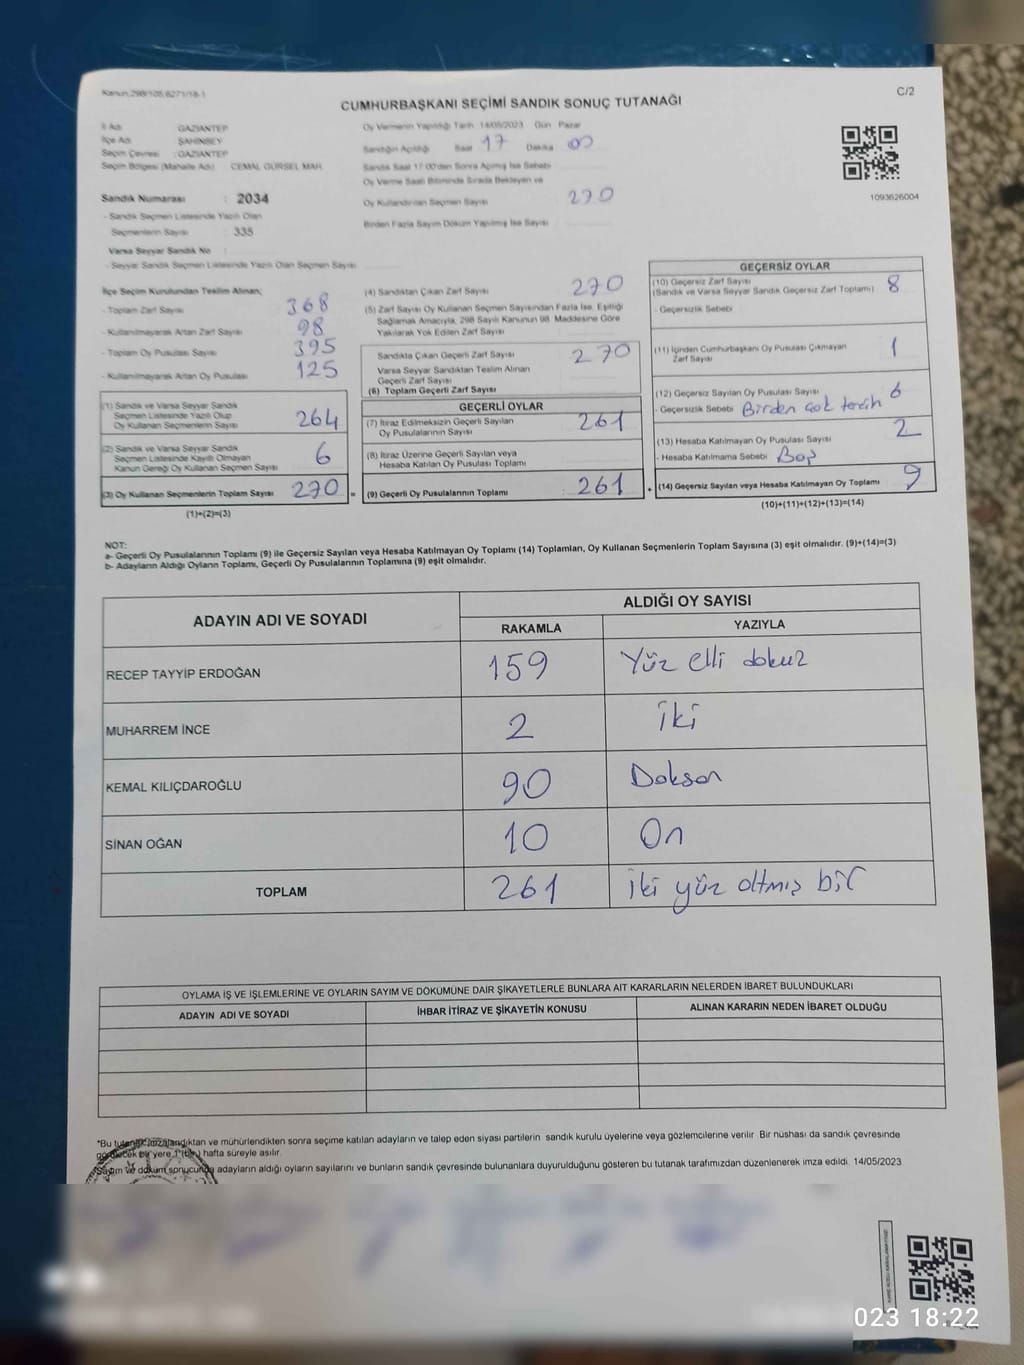 Kanun:298/105,6271/18-1
C/2
CUMHURBAŞKANI SEÇİMİ SANDIK SONUÇ TUTANAĞI
İl Adı GAZİANTEP
İlçe Adı ŞAHİNBEY
Seçim Çevresi : GAZİANTEP
Seçim Bölgesi (Mahalle Adı) CEMAL GÜRSEL MAH.
Sandık Numarası : 2034
- Sandık Seçmen Listesinde Yazılı Olan
Seçmenlerin Sayısı : 335
Varsa Seyyar Sandık No
- Seyyar Sandık Seçmen Listesinde Yazılı Olan Seçmen Sayısı
Oy Vermenin Yapıldığı Tarih :14/05/2023 Gün : Pazar
Sandığın Açıldığı Saat 17 Dakika 00
Sandık Saat 17:00'den Sonra Açılmış İse Sebebi
Oy Verme Saati Bitiminde Sırada Bekleyen ve
Oy Kullandırılan Seçmen Sayısı 270
Birden Fazla Sayım Döküm Yapılmış İse Sayısı
1093626004
İlçe Seçim Kurulundan Teslim Alınan;
- Toplam Zarf Sayısı 368
- Kullanılmayarak Artan Zarf Sayısı 98
- Toplam Oy Pusulası Sayısı 395
- Kullanılmayarak Artan Oy Pusulası 125
(1) Sandık ve Varsa Seyyar Sandık
Seçmen Listesinde Yazılı Olup
Oy Kullanan Seçmenlerin Sayısı 264
(2) Sandık ve Varsa Seyyar Sandık
Seçmen Listesinde Kayıtlı Olmayan
Kanun Gereği Oy Kullanan Seçmen Sayısı 6
(3) Oy Kullanan Seçmenlerin Toplam Sayısı 270 =
(1)+(2)=(3)
(4) Sandıktan Çıkan Zarf Sayısı 270
(5) Zarf Sayısı Oy Kullanan Seçmen Sayısından Fazla İse, Eşitliği
Sağlamak Amacıyla, 298 Sayılı Kanunun 98. Maddesine Göre
Yakılarak Yok Edilen Zarf Sayısı
Sandıkta Çıkan Geçerli Zarf Sayısı 270
Varsa Seyyar Sandıktan Teslim Alınan
Geçerli Zarf Sayısı
(6) Toplam Geçerli Zarf Sayısı
GEÇERLİ OYLAR
(7) İtiraz Edilmeksizin Geçerli Sayılan
Oy Pusulalarının Sayısı 261
(8) İtiraz Üzerine Geçerli Sayılan veya
Hesaba Katılan Oy Pusulası Toplamı
(9) Geçerli Oy Pusulalarının Toplamı : 261 +
GEÇERSİZ OYLAR
(10) Geçersiz Zarf Sayısı
(Sandık ve Varsa Seyyar Sandık Geçersiz Zarf Toplamı) 8
- Geçersizlik Sebebi
(11) İçinden Cumhurbaşkanı Oy Pusulası Çıkmayan
Zarf Sayısı 1
(12) Geçersiz Sayılan Oy Pusulası Sayısı 6
- Geçersizlik Sebebi Birden çok tercih
(13) Hesaba Katılmayan Oy Pusulası Sayısı 2
- Hesaba Katılmama Sebebi Boş
(14) Geçersiz Sayılan veya Hesaba Katılmayan Oy Toplamı 9
(10)+(11)+(12)+(13)=(14)
NOT:
a- Geçerli Oy Pusulalarının Toplamı (9) ile Geçersiz Sayılan veya Hesaba Katılmayan Oy Toplamı (14) Toplamları, Oy Kullanan Seçmenlerin Toplam Sayısına (3) eşit olmalıdır. (9)+(14)=(3)
b- Adayların Aldığı Oyların Toplamı, Geçerli Oy Pusulalarının Toplamına (9) eşit olmalıdır.
ADAYIN ADI VE SOYADI ALDIĞI OY SAYISI
RAKAMLA YAZIYLA
RECEP TAYYİP ERDOĞAN 159 Yüz elli dokuz
MUHARREM İNCE 2 iki
KEMAL KILIÇDAROĞLU 90 Doksan
SİNAN OĞAN 10 On
TOPLAM 261 iki yüz altmış bir
OYLAMA İŞ VE İŞLEMLERİNE VE OYLARIN SAYIM VE DÖKÜMÜNE DAİR ŞİKAYETLERLE BUNLARA AİT KARARLARIN NELERDEN İBARET BULUNDUKLARI
ADAYIN ADI VE SOYADI İHBAR İTİRAZ VE ŞİKAYETİN KONUSU ALINAN KARARIN NEDEN İBARET OLDUĞU
*Bu tutanak imzalandıktan ve mühürlendikten sonra seçime katılan adayların ve talep eden siyasi partilerin sandık kurulu üyelerine veya gözlemcilerine verilir. Bir nüshası da sandık çevresinde
görülecek bir yere 1 (bir) hafta süreyle asılır.
Sayım ve döküm sonucunda adayların aldığı oyların sayılarını ve bunların sandık çevresinde bulunanlara duyurulduğunu gösteren bu tutanak tarafımızdan düzenlenerek imza edildi. 14/05/2023
023 18:22